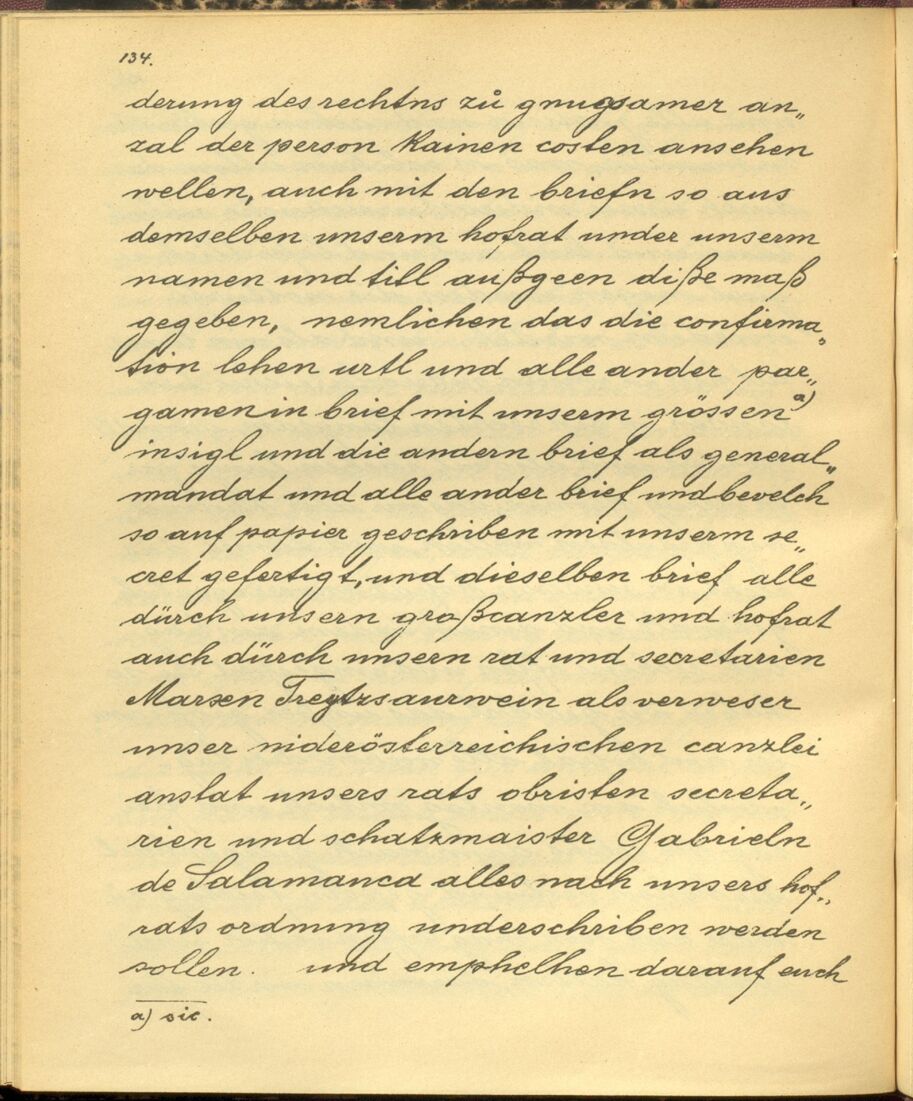 134.
derung des rechtns zů gnugsamer an„
zal der person kainen costen ansehen
wellen, auch mit den briefn so aus
demselben unserm hofrat under unserm
namen und titl außgeen diße maß
gegeben, nemlichen das die confirma„
tion lehen urtl und alle ander par„
gamenin brief mit unserm grössen a)
insigl und die andern brief als general„
mandat und alle ander brief und bevelch
so auf papier geschriben mit unserm se„
cret gefertigt, und dieselben brief alle
dürch unsern großcanzler und hofrat
auch dürch unsern rat und secretarien
Marxen Treytzsaurwein als verweser
unser niderösterreichischen canzlei
anstat unsers rats obristen secreta„
rien und schatzmaister Gabrieln
de Salamanca alles nach unsers hof„
rats ordnung underschriben werden
sollen. und emphelhen darauf euch
a) sic.